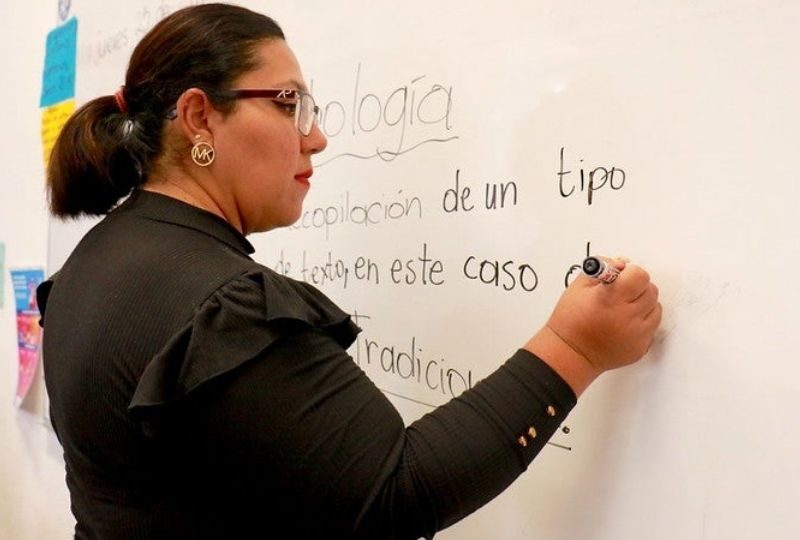 Jueves 25 de
ología
ecopilación de un tipo
de texto, en este caso
Tradicio
MK